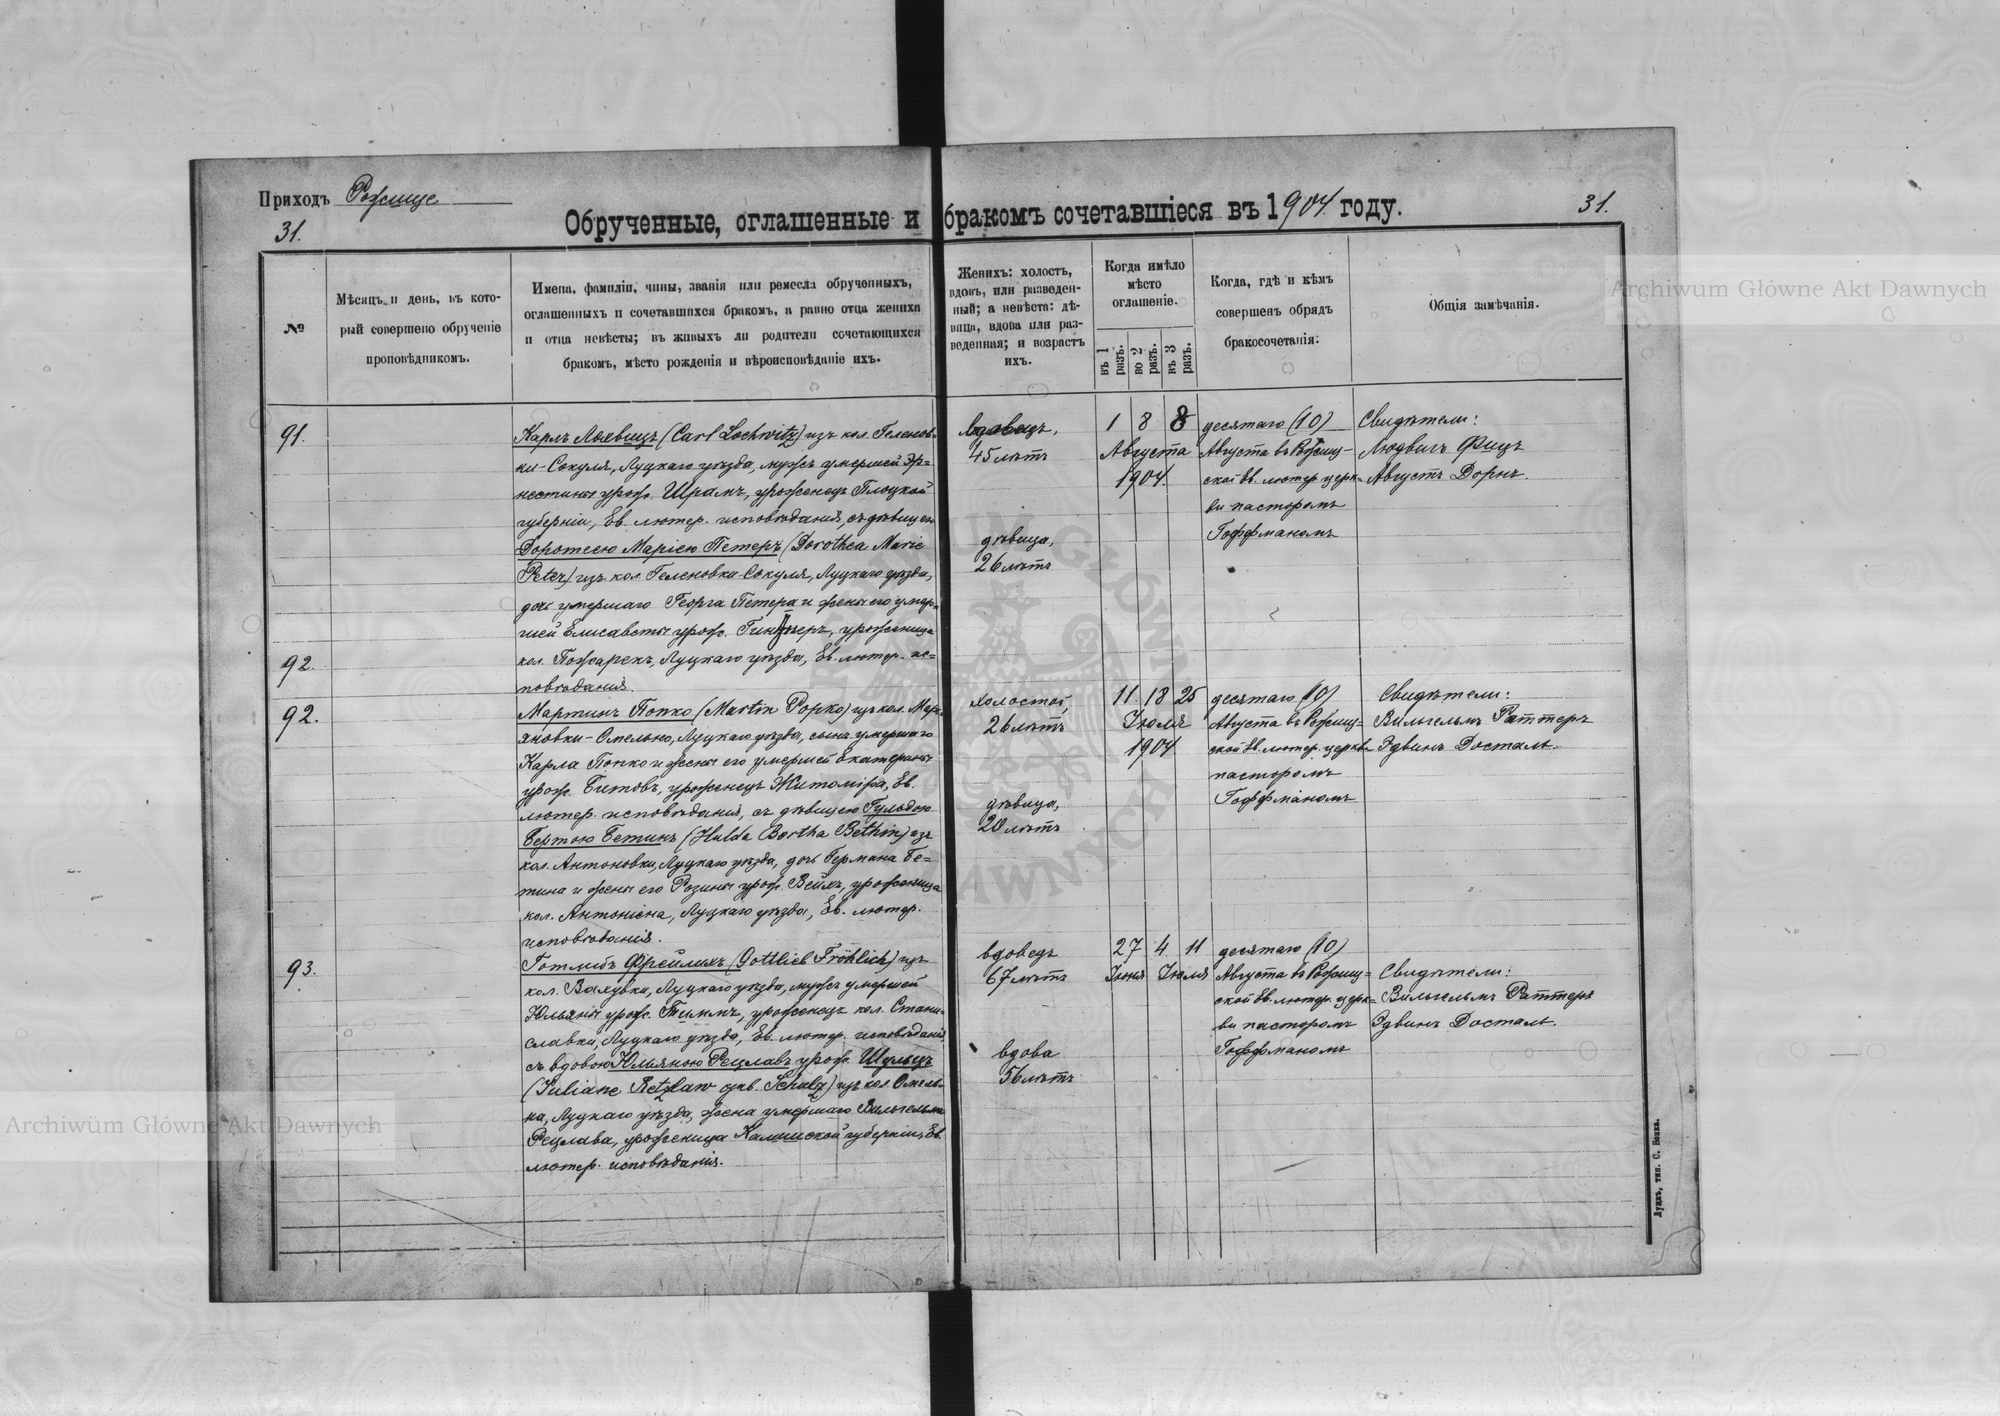 Приходъ Рожище
31.
Обрученные, оглашенные и бракомъ сочетавшіеся въ 1904 году.
31.
№
Мѣсяцъ и день, въ кото-
рый совершено обрученіе
проповѣдникомъ.
Имена, фамиліи, чины, званія или ремесла обрученныхъ,
оглашенныхъ и сочетавшихся бракомъ, а равно отца жениха
и отца невѣсты; въ живыхъ ли родители сочетающихся
бракомъ, мѣсто рожденія и вѣроисповѣданіе ихъ.
Женихъ: холостъ,
вдовъ, или разведен-
ный; а невѣста: дѣ-
вица, вдова или раз-
веденная; и возрастъ
ихъ.
Когда имѣло
мѣсто
оглашеніе.
въ 1 разъ.
во 2 разъ.
въ 3 разъ.
Когда, гдѣ и кѣмъ
совершенъ обрядъ
бракосочетанія:
Общія замѣчанія.
91.
Карлъ Лохвицъ (Carl Lochwitz) изъ кол. Геленов-
ки-Сокуля, Луцкаго уѣзда, мужъ умершей Эр-
нестины урож. Шрамъ, уроженецъ Плоцкой
губерніи, Ев. лютер. исповѣданія, съ дѣвицею
Доротеею Маріею Петеръ (Dorothea Marie
Peter) изъ кол. Геленовки-Сокуля, Луцкаго уѣзда,
дочь умершаго Георга Петера и жены его умер-
шей Елисаветы урож., уроженица
кол. Пожарекъ, Луцкаго уѣзда, Ев. лютер. ис-
повѣданія.
вдовецъ,
45 лѣтъ
дѣвица,
26 лѣтъ
1 8 8
Августа
1904.
десятаго (10)
Августа въ Рожищ-
ской Ев. лютер. церк-
ви пасторомъ
Гоффманомъ
Свидѣтели:
Людвигъ Фицъ
Августъ Дорнъ.
92.
92.
Мартинъ Попко (Martin Popko) изъ кол. Марь-
яновки-Омельно, Луцкаго уѣзда, сынъ умершаго
Карла Попко и жены его умершей Екатерины
урож. Битовъ, уроженецъ Житоміра, Ев.
лютер. исповѣданія, съ дѣвицею Гульдою
Бертою Бетинъ (Hulda Bertha Bethin) изъ
кол. Антоновки, Луцкаго уѣзда, дочь Германа Бе-
тина и жены его Розины урож. Вейхъ, уроженица
кол. Антонина, Луцкаго уѣзда, Ев. лютер.
исповѣданія.
холостой,
26 лѣтъ
дѣвица,
20 лѣтъ
11 18 25
Іюля
1904
десятаго (10)
Августа въ Рожищ-
ской Ев. лютер. церкви
пасторомъ
Гоффманомъ
Свидѣтели:
Вильгельмъ Раттеръ
Эдвинъ Досталь.
93.
Готлибъ Фрейлихъ (Gottlieb Fröhlich) изъ
кол. Валудки, Луцкаго уѣзда, мужъ умершей
Юльяны урож. Тиммъ, уроженецъ кол. Стани-
славки, Луцкаго уѣзда, Ев. лютер. исповѣданія,
съ вдовою Юльяною Рецлавъ урож. Шульцъ
(Juliane Retzlaw geb. Schulz) изъ кол. Омель-
на, Луцкаго уѣзда, жена умершаго Вильгельма
Рецлава, уроженица Калишской губерніи, Ев.
лютер. исповѣданія.
вдовецъ
67 лѣтъ
вдова
56 лѣтъ
27 4 11
Іюня Іюля
десятаго (10)
Августа въ Рожищ-
ской Ев. лютер. церк-
ви пасторомъ
Гоффманомъ
Свидѣтели:
Вильгельмъ Раттеръ
Эдвинъ Досталь.
Луцкъ, тип. С. Бонка.
Archiwum Główne Akt Dawnych
Archiwum Główne Akt Dawnych